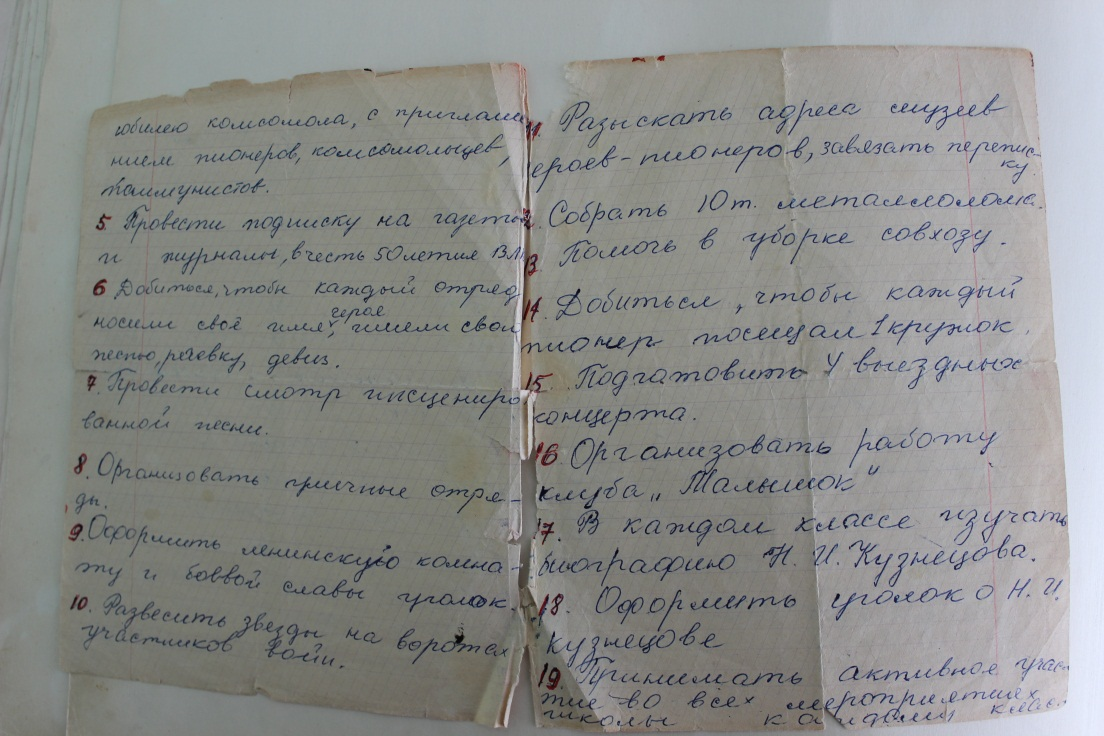 юбилею комсомола, с приглаше
нием пионеров, комсомольцев,
Коммунистов.
5. Провести подписку на газеты
и журналы, в честь 50летия ВЛ
6 Добиться, чтобы каждый отряд
носили своё имя героя, имели свою
песню, речёвку, девиз.
7. Провести смотр инсцениро
ванной песни.
8. Организовать уличные отря-
ды.
9. Оформить ленинскую комна-
ту и боевой славы уголок.
10. Развесить звёзды на воротах
участников войн.
11. Разыскать адреса музеев
героев-пионеров, завязать перепис-
ку.
12. Собрать 10т. металлолома.
13 Помочь в уборке совхозу.
14. Добиться, чтобы каждый
пионер посещал 1 кружок.
15. Подготовить 4 выездных
концерта.
16. Организовать работу
клуба „Малышок"
17. В каждом классе изучать
биографию Н. И. Кузнецова.
18. Оформить уголок о Н. И.
Кузнецове
19. Принимать активное учас-
тие во всех мероприятиях
школы